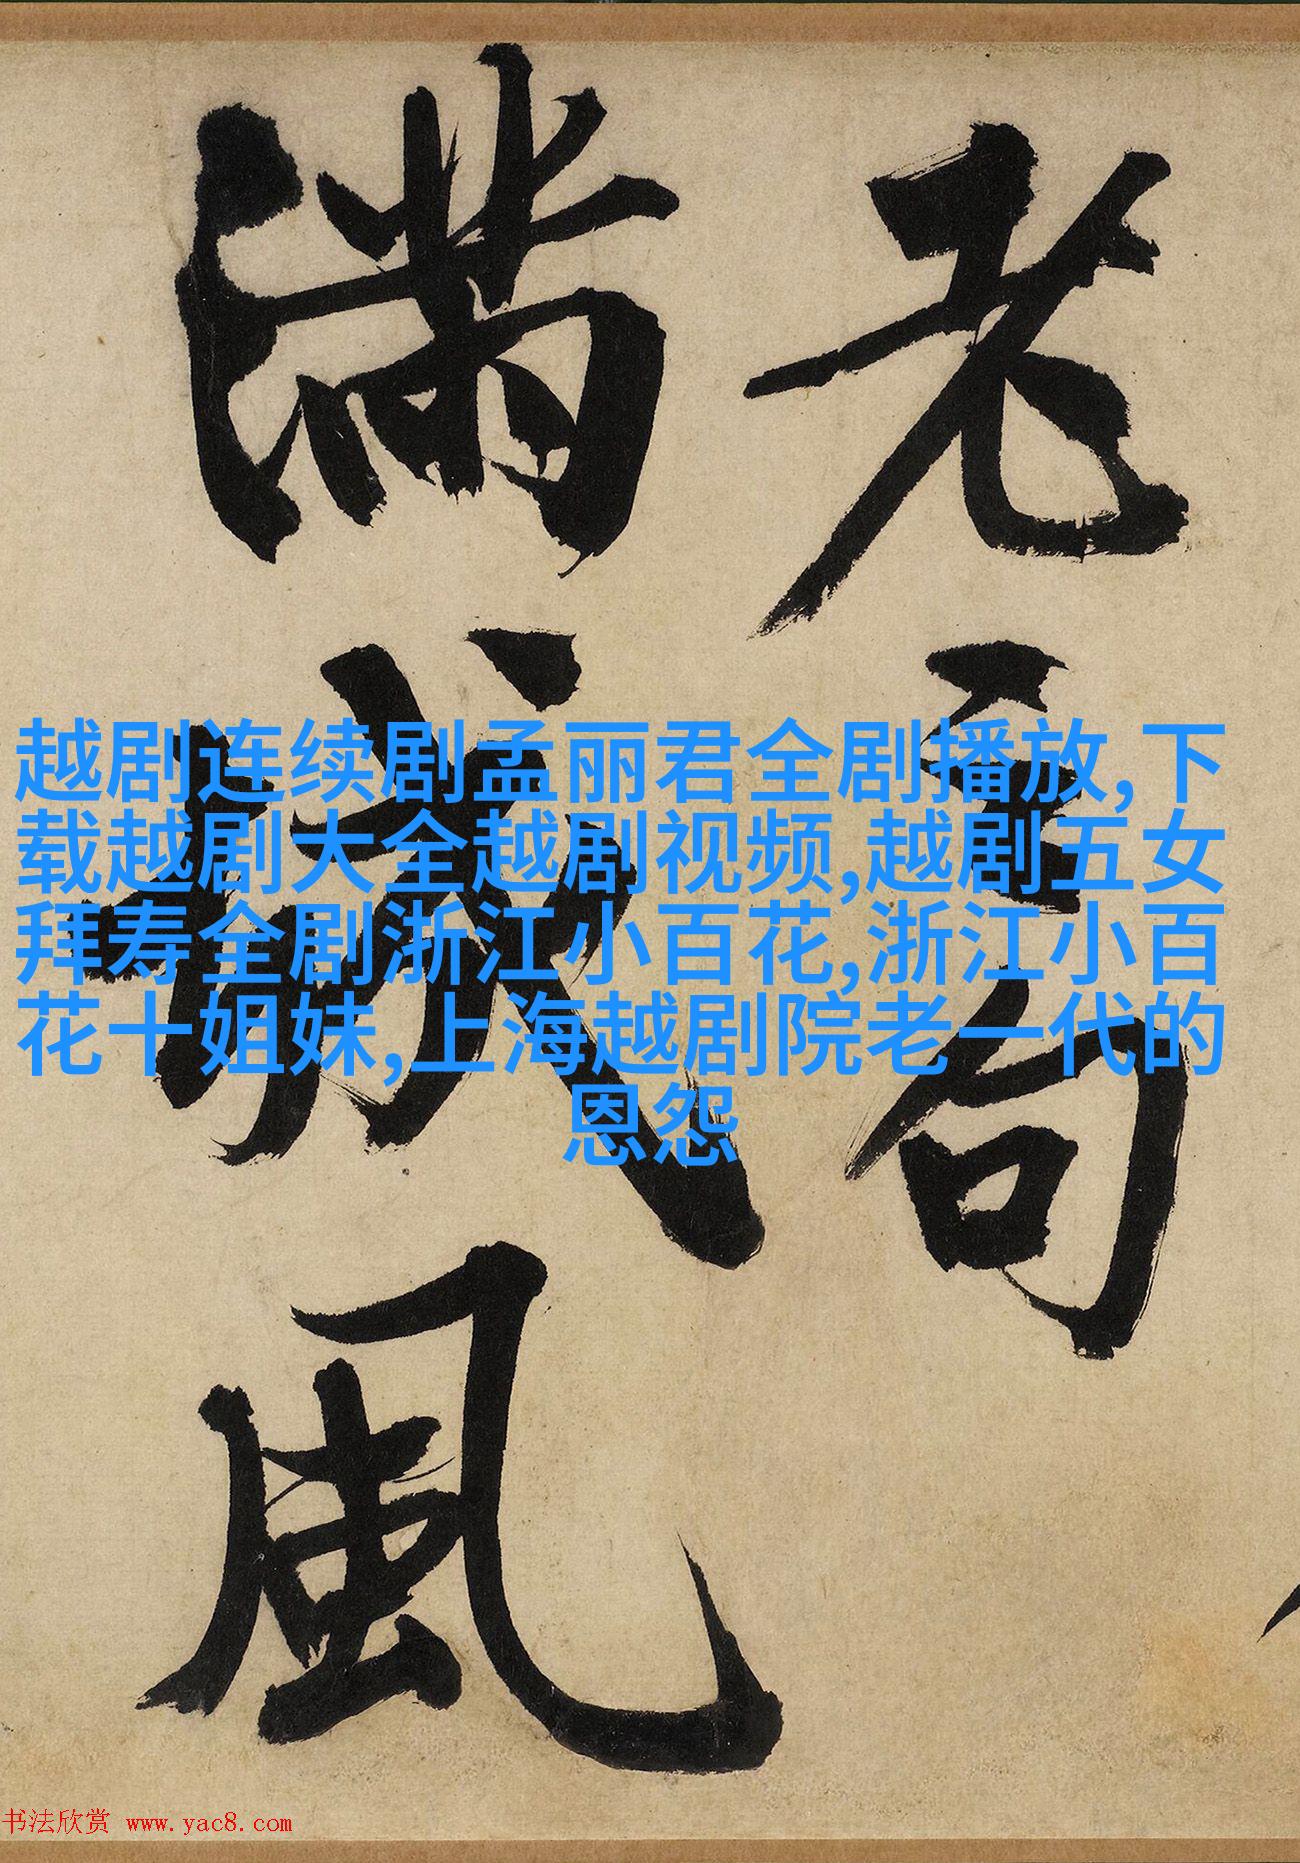 老句
滿城風
越剧连续剧孟丽君全剧播放,下
载越剧大全越剧视频,越剧五女
拜寿全剧浙江小百花,浙江小百
花十姐妹,上海越剧院老一代的
恩怨
书法欣赏 www.yac8.com